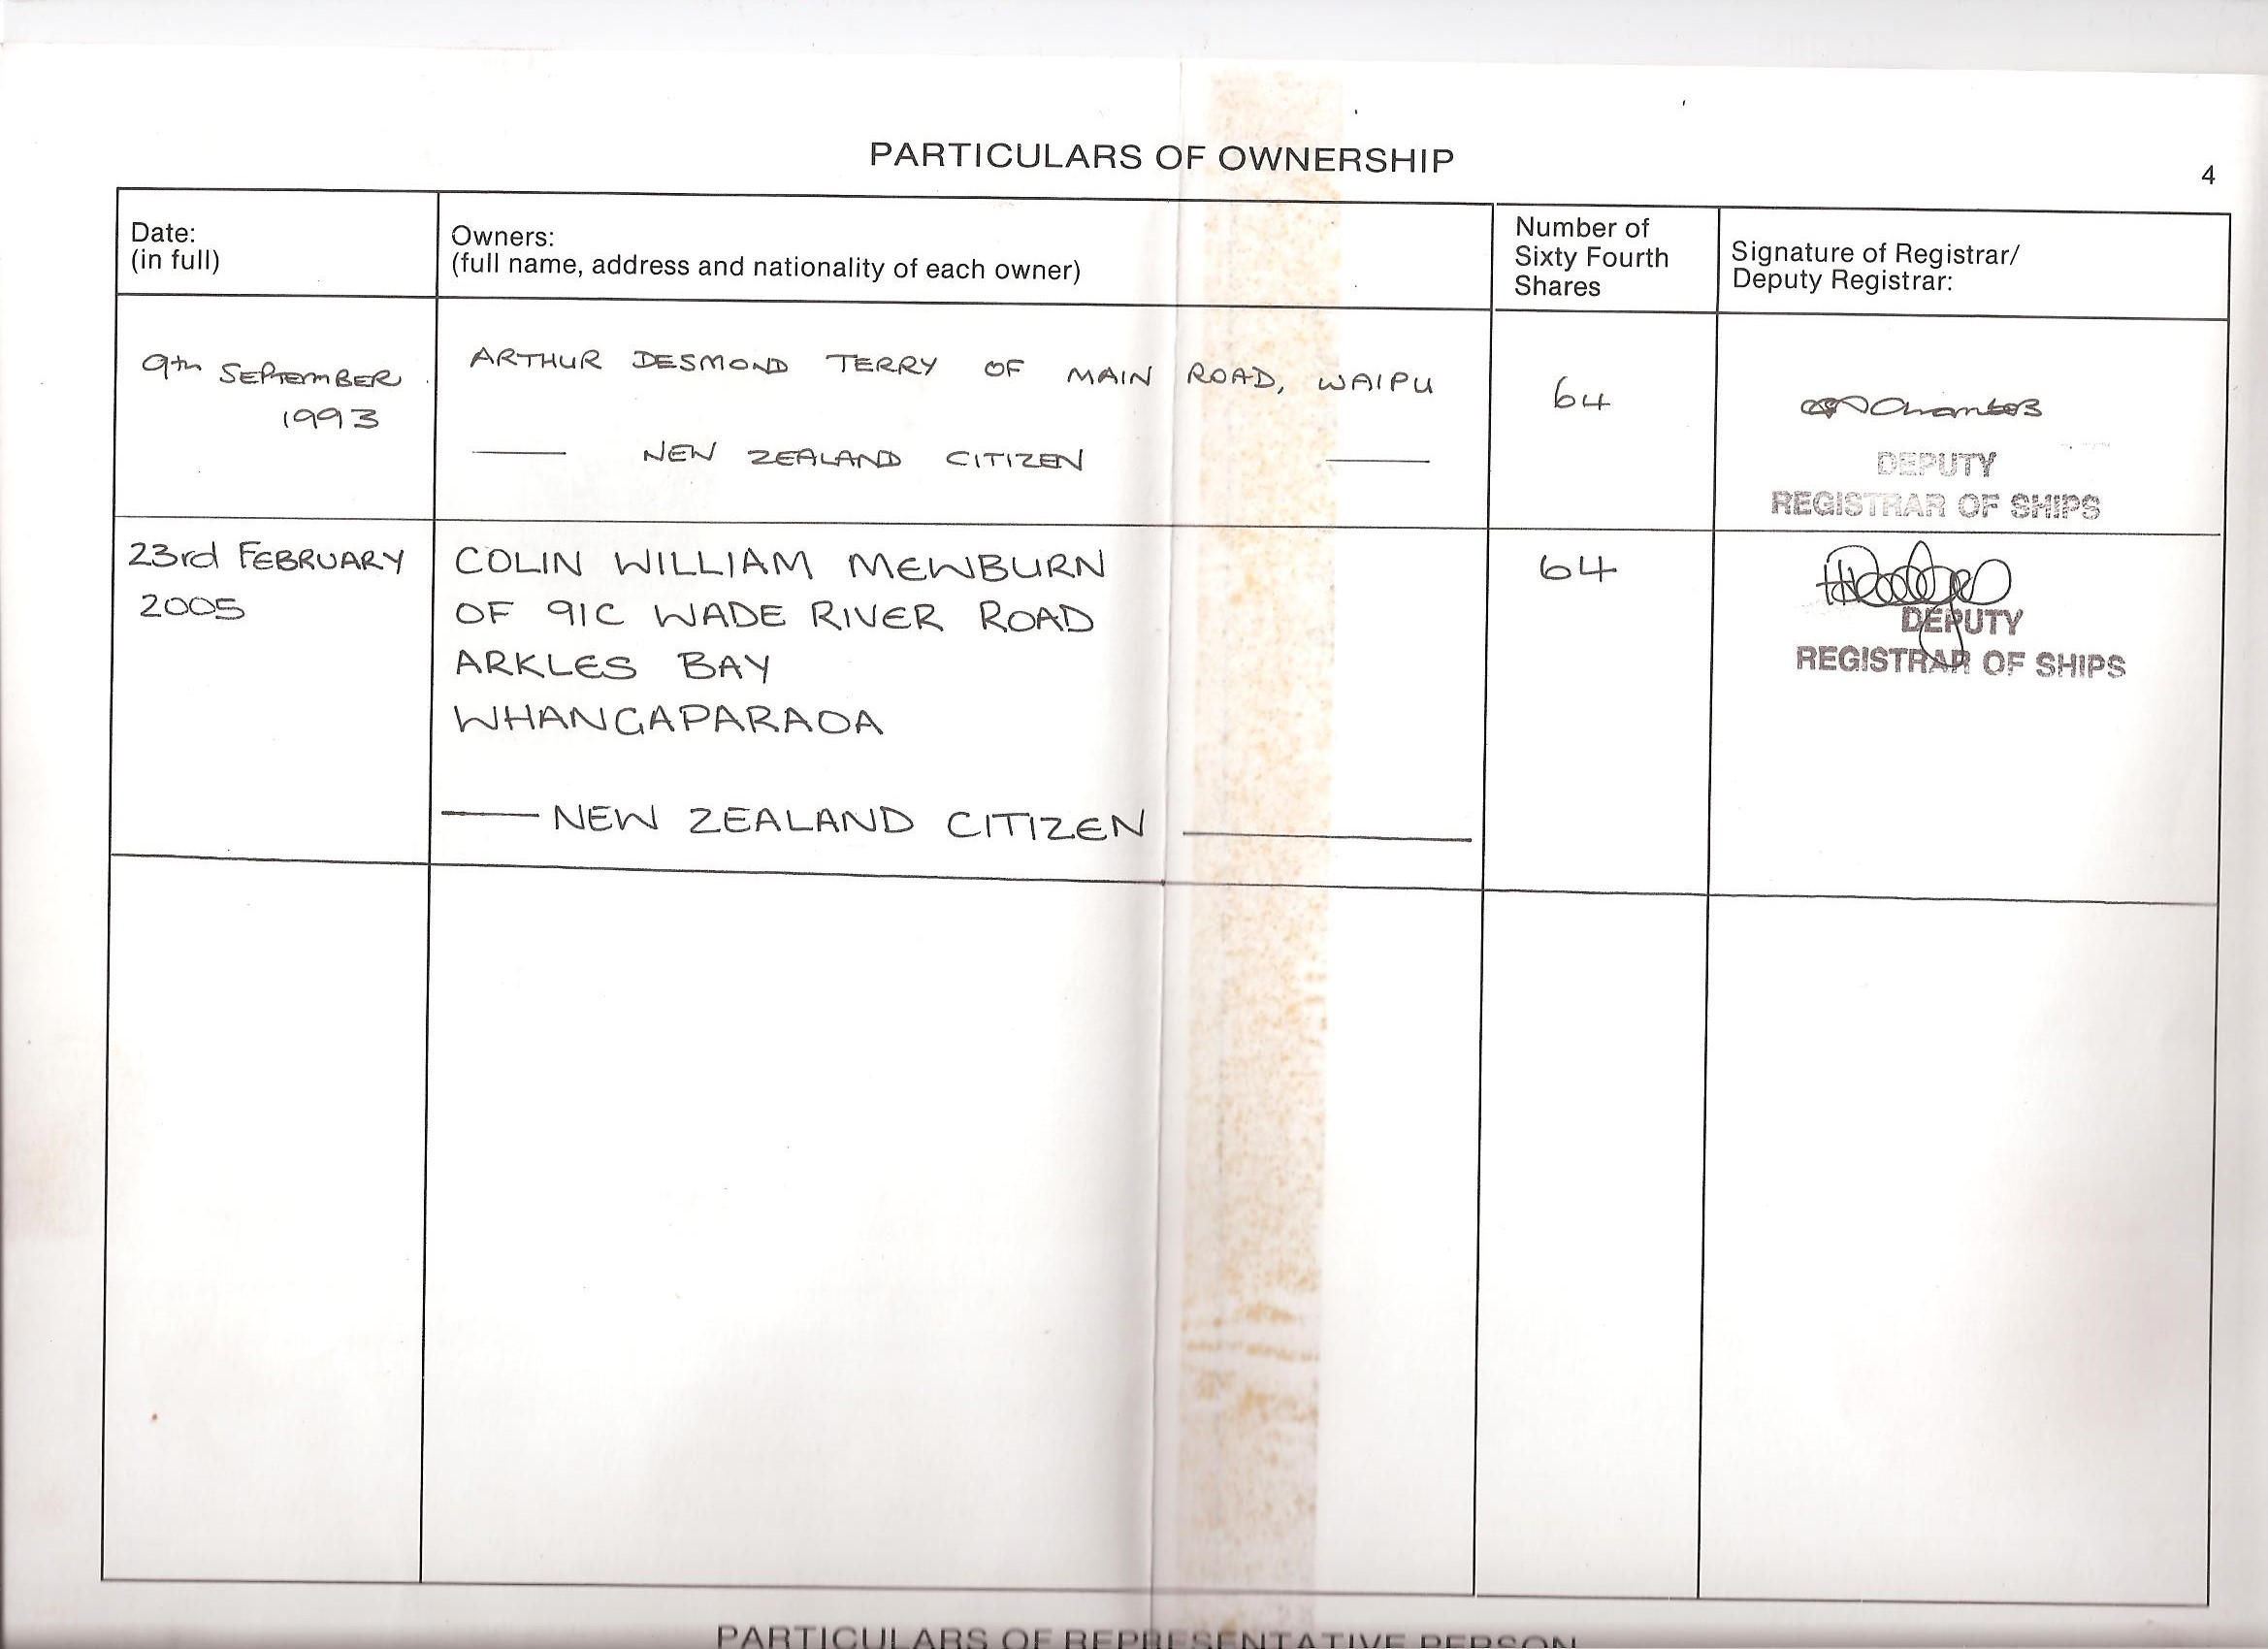 PARTICULARS OF OWNERSHIP
4
Date:
(in full)
Owners:
(full name, address and nationality of each owner)
Number of
Sixty Fourth
Shares
Signature of Registrar/
Deputy Registrar:
9th SEPTEMBER
1993
ARTHUR DESMOND TERRY OF MAIN ROAD, WAIPU
NEW ZEALAND CITIZEN
64
DEPUTY
REGISTRAR OF SHIPS
23rd FEBRUARY
2005
COLIN WILLIAM MEWBURN
OF 91C WADE RIVER ROAD
ARKLES BAY
WHANGAPARAOA
NEW ZEALAND CITIZEN
64
DEPUTY
REGISTRAR OF SHIPS
PARTICULARS OF REPRESENTATIVE PERSON